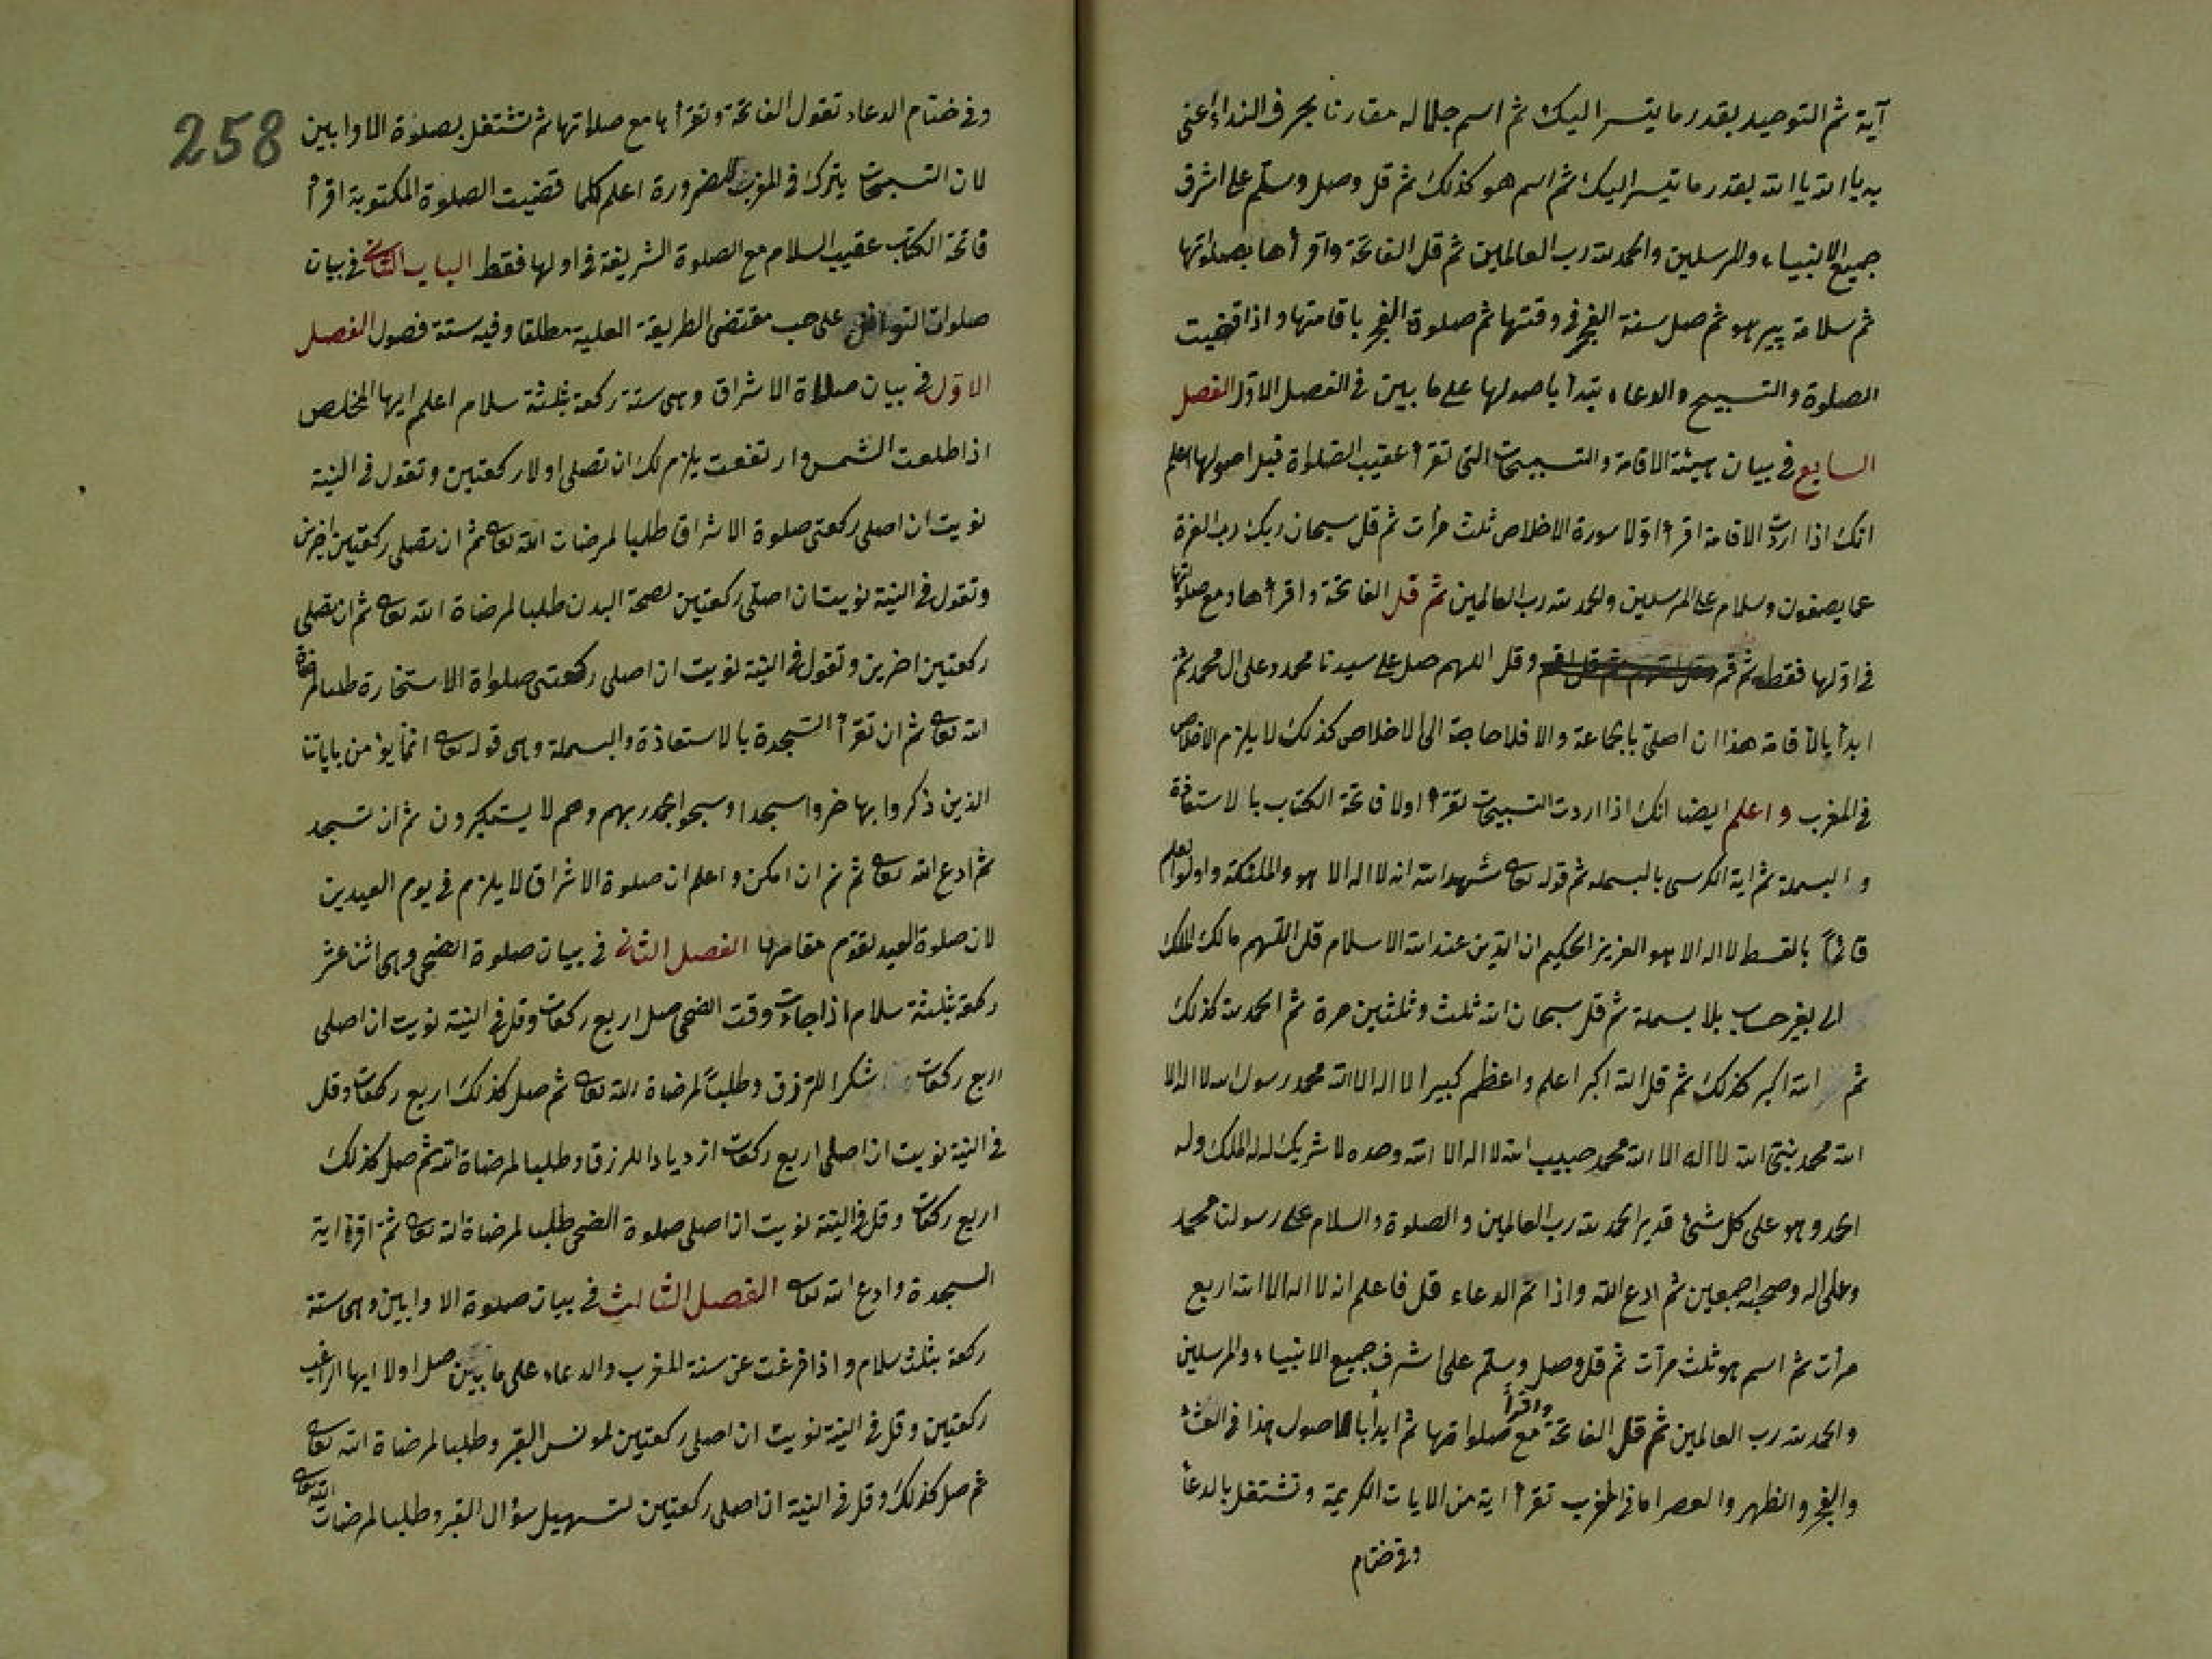 آية ثم التوحيد بقدر ما يتسر اليك ثم اسم جلاله مقارنا بحرف النداء اعنى
به يا الله يا الله بقدر ما يتسر اليك ثم اسم هو كذلك ثم قل وصل وسلم على اشرف
جميع الانبياء والمرسلين والحمد لله رب العالمين ثم قل الفاتحة واقرأها بصلواتها
ثم سلامة پير هو ثم صل سنة الفجر فى وقتها ثم صلوة الفجر باقامتها واذا قضيت
الصلوة والتسبيح والدعاء تبدأ باصولها على ما بين فى الفصل الاول الفصل
السابع فى بيان هيئة الاقامة والتسبيحات التى تقرأ عقيب الصلوة قبل اصولها اعلم
انك اذا اردت الاقامة اقرأ اولا سورة الاخلاص ثلث مرات ثم قل سبحان ربك رب العزة
عما يصفون وسلام على المرسلين والحمد لله رب العالمين ثم قل الفاتحة واقرأها ومع صلواتها
فى اولها فقط ثم قم وقل اللهم صل على سيدنا محمد وعلى ال محمد ثم
ابدأ بالاقامة هذا ان اصلى بالجماعة والا فلا حاجة الى الاخلاص كذلك لا يلزم الاخلاص
فى المغرب واعلم ايضا انك اذا اردت التسبيحات تقرأ اولا فاتحة الكتاب بالاستعاذة
والبسملة ثم اية الكرسى بالبسمله ثم قوله تعالى شهد الله انه لا اله الا هو والملئكة واولوا العلم
قائما بالقسط لا اله الا هو العزيز الحكيم ان الدين عند الله الاسلام قل اللهم مالك الملك
الى بغير حساب بلا بسملة ثم قل سبحان الله ثلث وثلثين مرة ثم الحمد لله كذلك
ثم الله اكبر كذلك ثم قل الله اكبر اعلم واعظم كبيرا لا اله الا الله محمد رسول الله لا اله الا
الله محمد نبى الله لا اله الا الله محمد حبيب الله لا اله الا الله وحده لا شريك له له الملك وله
الحمد وهو على كل شئ قدير الحمد لله رب العالمين والصلوة والسلام على رسولنا محمد
وعلى اله وصحبه اجمعين ثم ادع الله واذا تم الدعاء قل فاعلم انه لا اله الا الله اربع
مرات ثم اسم هو ثلث مرات ثم قل وصل وسلم على اشرف جميع الانبياء والمرسلين
والحمد لله رب العالمين ثم قل الفاتحة واقرأ مع صلواتها ثم ابدأ بالاصول هذا فى العشاء
والفجر والظهر والعصر اما فى المغرب تقرأ اية من الايات الكريمة وتشتغل بالدعاء
وفى ختام
258
وفى ختام الدعاء تقول الفاتحة وتقرأها مع صلاتها ثم تشتغل بصلوة الاوابين
لان التسبيحات يترك فى المغرب للضرورة اعلم كلما قضيت الصلوة المكتوبة اقرأ
فاتحة الكتاب عقيب السلام مع الصلوة الشريفة فى اولها فقط الباب الثانى فى بيان
صلوات النوافل على حسب مقتضى الطريقة العلية مطلقا وفيه ستة فصول الفصل
الاول فى بيان صلاة الاشراق وهى ستة ركعة بثلثة سلام اعلم ايها المخلص
اذا طلعت الشمس وارتفعت يلزم لك ان تصلى اولا ركعتين وتقول فى النية
نويت ان اصلى ركعتى صلوة الاشراق طلبا لمرضات الله تعالى ثم ان تصلى ركعتين اخرين
وتقول فى النية نويت ان اصلى ركعتين لصحة البدن طلبا لمرضاة الله تعالى ثم ان تصلى
ركعتين اخرين وتقول فى النية نويت ان اصلى ركعتى صلواة الاستخارة طلبا لمرضاة
الله تعالى ثم ان تقرأ السجدة بالاستعاذة والبسملة وهى قوله تعالى انما يؤمن باياتنا
الذين ذكروا بها خروا سجدا وسبحوا بحمد ربهم وهم لا يستكبرون ثم ان تسجد
ثم ادع الله تعالى ثم نم ان امكن واعلم ان صلوة الاشراق لا يلزم فى يوم العيدين
لان صلوة العيد تقوم مقامها الفصل الثانى فى بيان صلوة الضحى وهى اثنا عشر
ركعة بثلثة سلام اذا جاءت وقت الضحى صل اربع ركعات وقل فى النية نويت ان اصلى
اربع ركعات شكرا للرزق وطلبا لمرضاة الله تعالى ثم صل كذلك اربع ركعات وقل
فى النية نويت ان اصلى اربع ركعات ازديادا للرزق وطلبا لمرضاة الله ثم صل كذلك
اربع ركعات وقل فى النية نويت ان اصلى صلوة الضحى طلبا لمرضاة الله تعالى ثم اقرأ اية
السجدة وادع الله تعالى الفصل الثالث فى بيان صلوة الاوابين وهى ستة
ركعة بثلث سلام واذا فرغت عن سنة المغرب والدعاء على ما بين صل اولا ايها الراغب
ركعتين وقل فى النية نويت ان اصلى ركعتين لمونس القبر وطلبا لمرضاة الله تعالى
ثم صل كذلك وقل فى النية ان اصلى ركعتين لتسهيل سؤال القبر وطلبا لمرضات الله تعالى